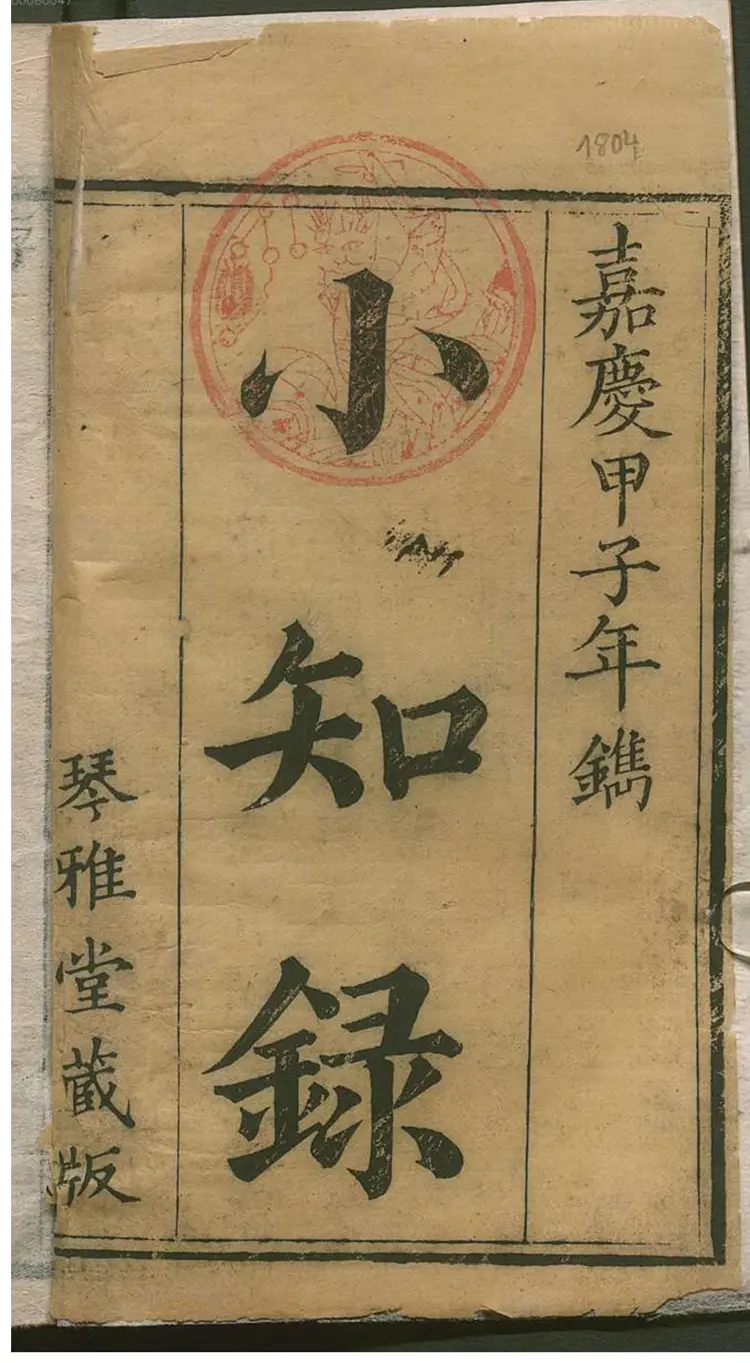 1804
嘉慶甲子年鐫
小知録
琴雅堂蔵版